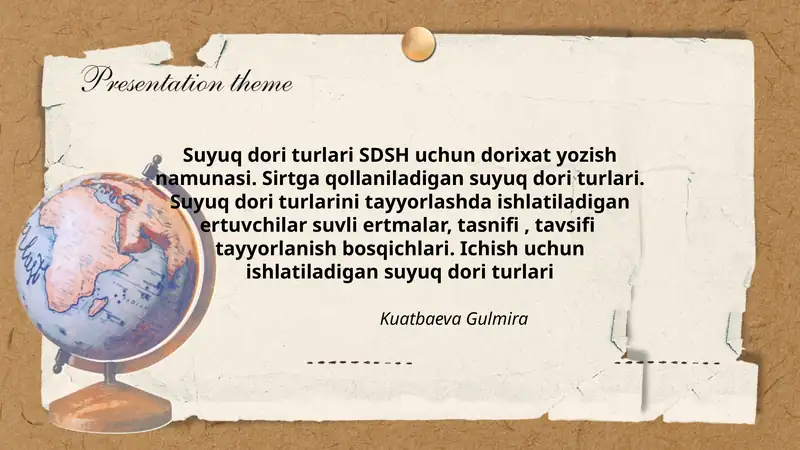 Presentation theme
Suyuq dori turlari SDSH uchun dorixat yozish
namunasi. Sirtga qollaniladigan suyuq dori turlari.
Suyuq dori turlarini tayyorlashda ishlatiladigan
ertuvchilar suvli ertmalar, tasnifi , tavsifi
tayyorlanish bosqichlari. Ichish uchun
ishlatiladigan suyuq dori turlari
Kuatbaeva Gulmira